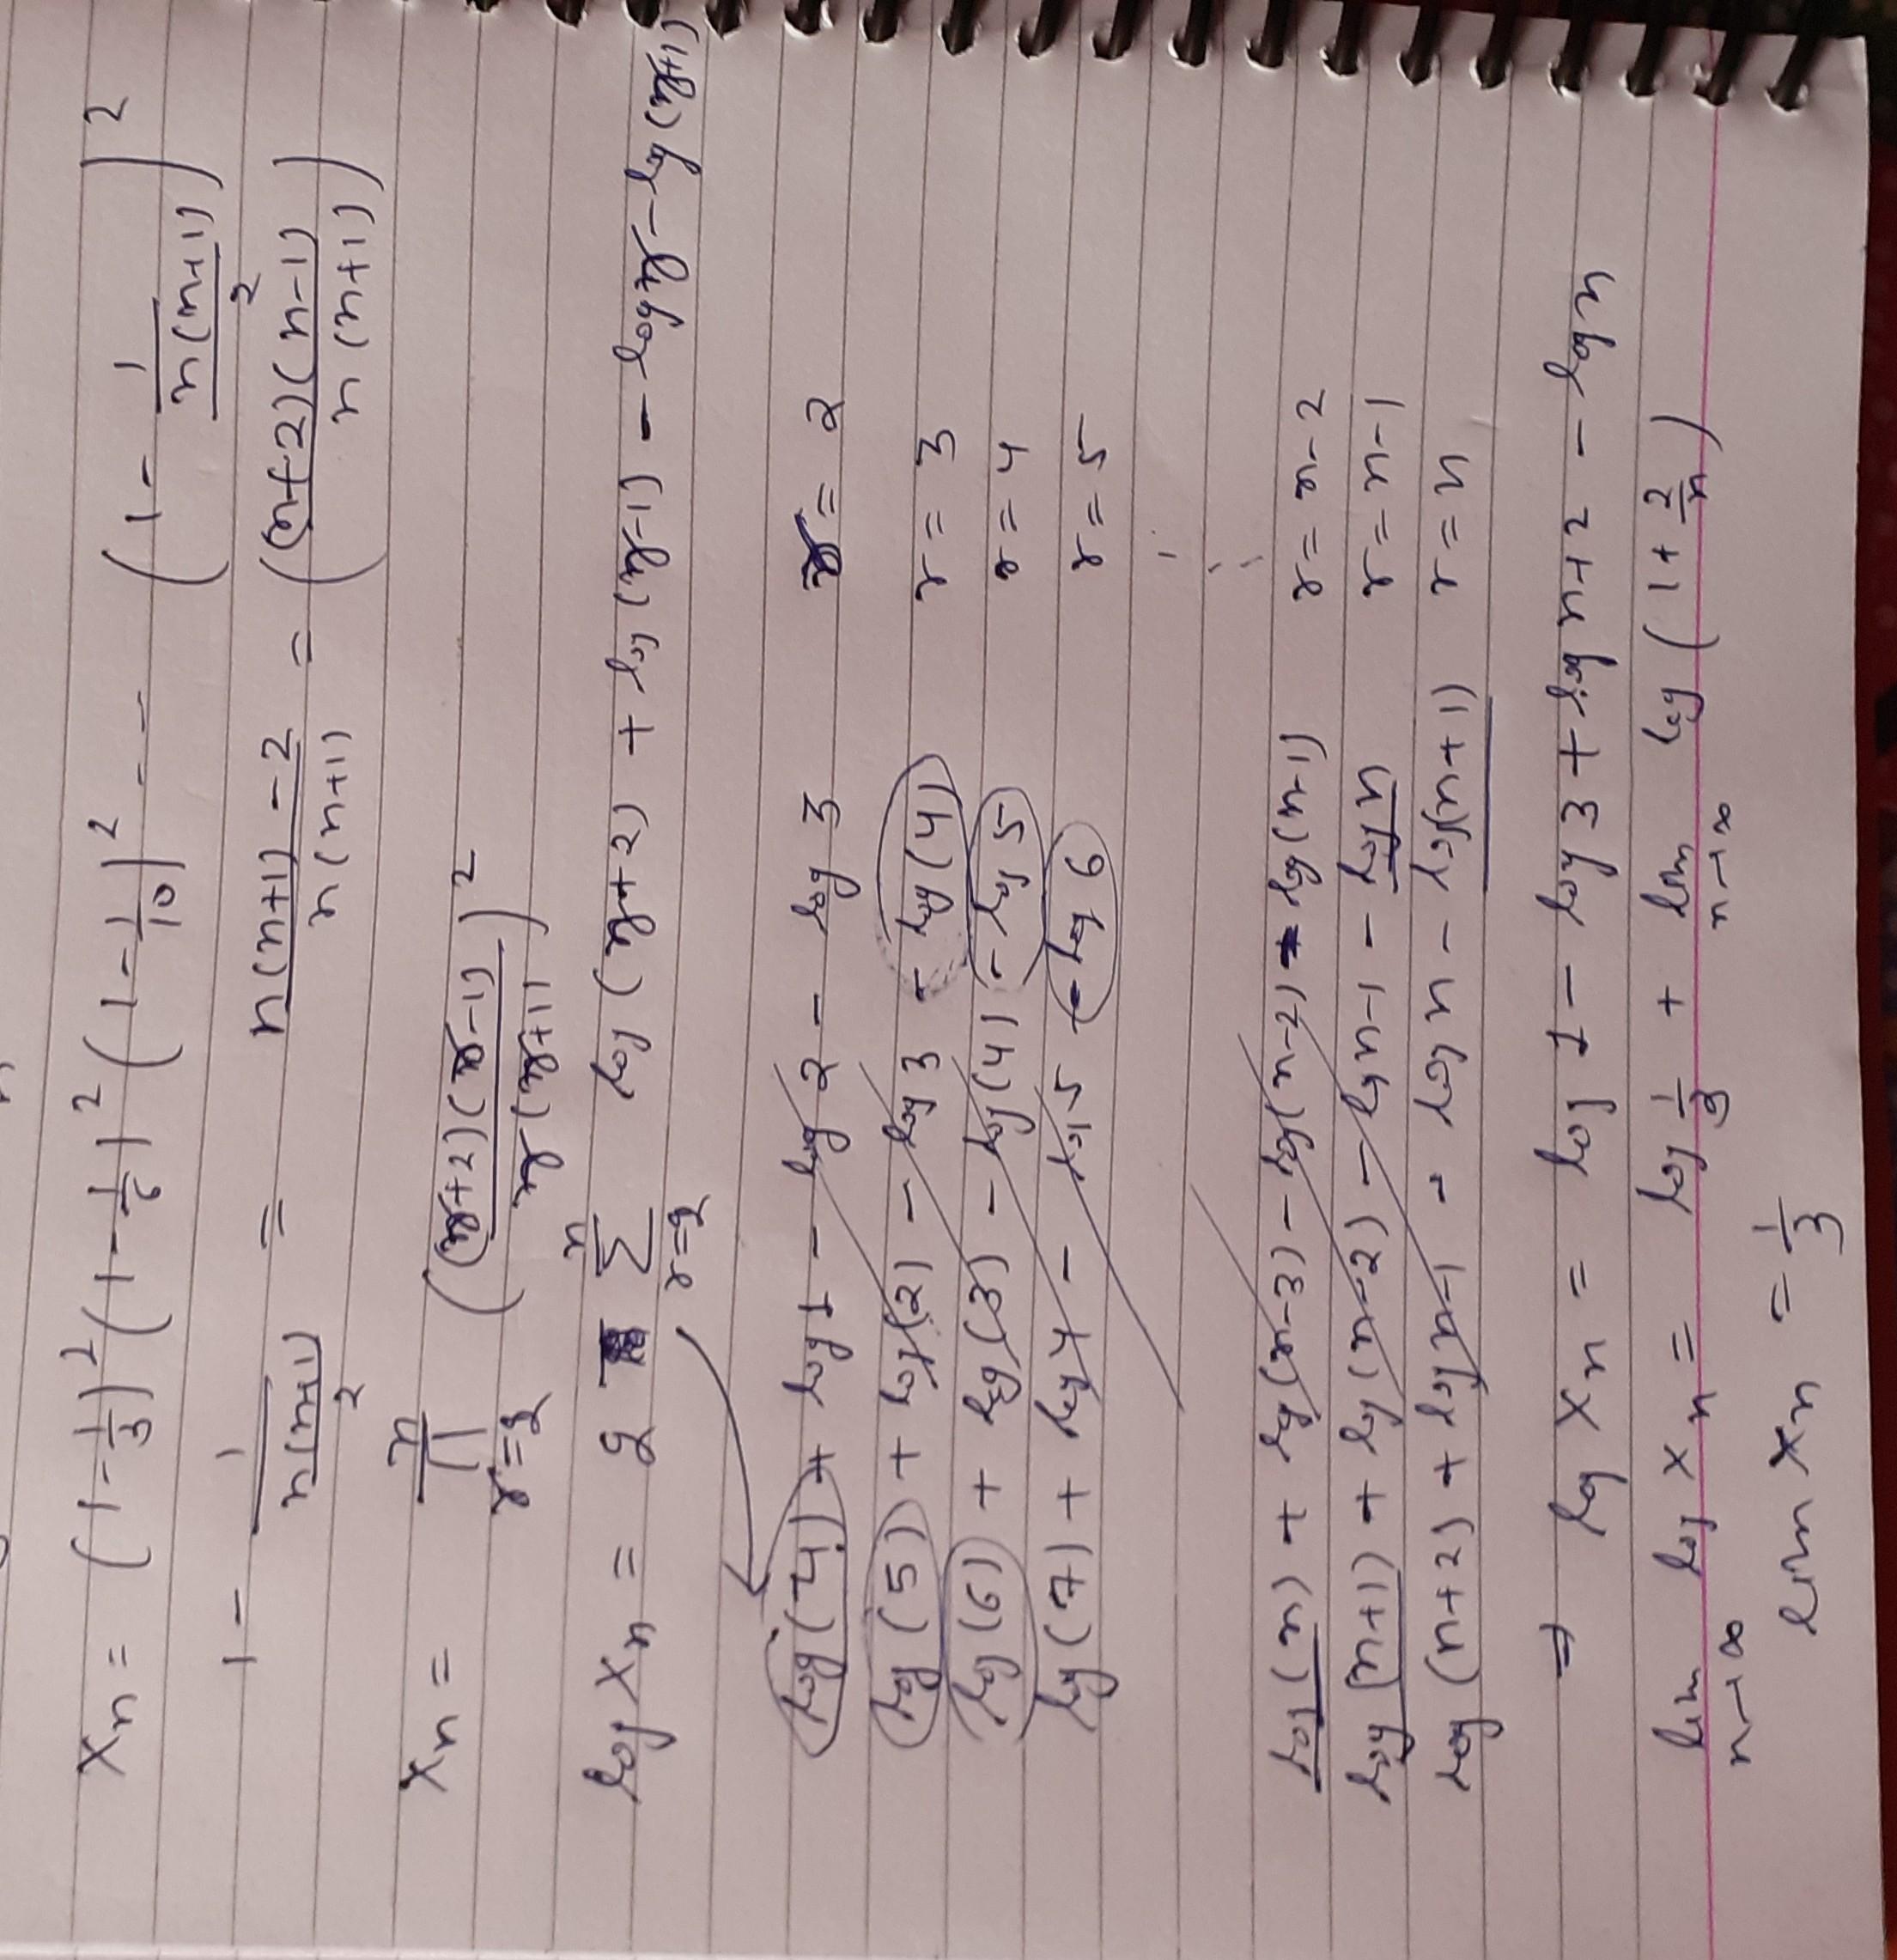 xn = (1 - 1/3)² (1 - 1/6)² (1 - 1/10)² - - - (1 - 1/(n(n+1)/2))²
1 - 1/(n(n+1)/2) = (n(n+1) - 2)/(n(n+1)) = ((n+2)(n-1)/n(n+1))
xn = ∏_{r=2}^{n} ((r+2)(r-1)/r(r+1))²
log xn = 2 ∑_{r=2}^{n} log (r+2) + log (r-1) - log r - log (r+1)
log (4) + log 1 - log 2 - log 3 r = 2
log (5) + log (2) - log 3 - log (4) r = 3
log (6) + log (3) - log (4) - log 5 r = 4
log (7) + log 4 - log 5 - log 6 r = 5
log (n) + log (n-3) - log (n-2) - log (n-1) r = n-2
log (n+1) + log (n-2) - log n-1 - log n r = n-1
log (n+2) + log n-1 - log n - log (n+1) r = n
⇒ log xn = log 1 - log 3 + log n+2 - log n
lim n→∞ log xn = log 1/3 + lim n→∞ log (1 + 2/n)
lim xn = 1/3